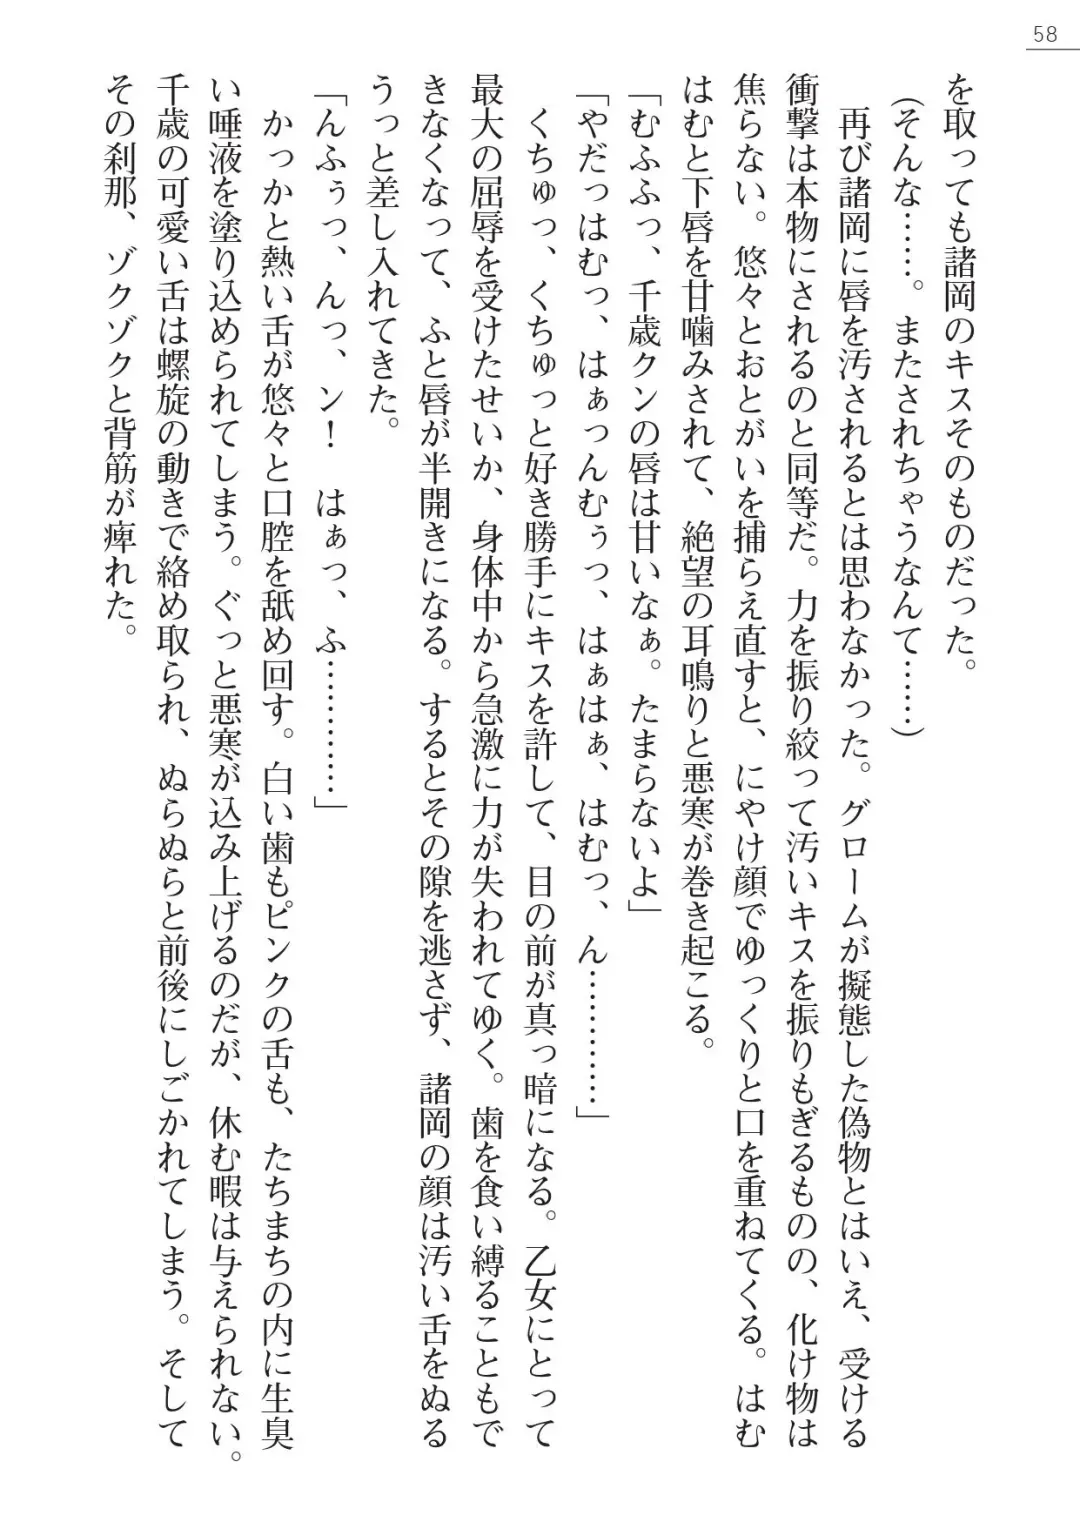 58
を取っても諸岡のキスそのものだった。
（そんな……。またされちゃうなんて……）
再び諸岡に唇を汚されるとは思わなかった。グロームが擬態した偽物とはいえ、受ける
衝撃は本物にされるのと同等だ。力を振り絞って汚いキスを振りもぎるものの、化け物は
焦らない。悠々とおとがいを捕らえ直すと、にやけ顔でゆっくりと口を重ねてくる。はむ
はむと下唇を甘噛みされて、絶望の耳鳴りと悪寒が巻き起こる。
「むふふっ、千歳クンの唇は甘いなぁ。たまらないよ」
「やだっはむっ、はぁっんむぅっ、はぁはぁ、はむっ、ん…………」
くちゅっ、くちゅっと好き勝手にキスを許して、目の前が真っ暗になる。乙女にとって
最大の屈辱を受けたせいか、身体中から急激に力が失われてゆく。歯を食い縛ることもで
きなくなって、ふと唇が半開きになる。するとその隙を逃さず、諸岡の顔は汚い舌をぬる
うっと差し入れてきた。
「んふぅっ、んっ、ン！　はぁっ、ふ…………」
かっかと熱い舌が悠々と口腔を舐め回す。白い歯もピンクの舌も、たちまちの内に生臭
い唾液を塗り込められてしまう。ぐっと悪寒が込み上げるのだが、休む暇は与えられない。
千歳の可愛い舌は螺旋の動きで絡め取られ、ぬらぬらと前後にしごかれてしまう。そして
その刹那、ゾクゾクと背筋が痺れた。